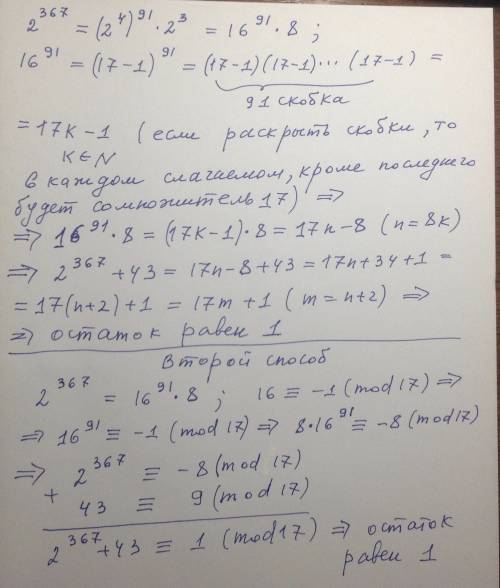 2^367 = (2^4)^91 · 2^3 = 16^91 · 8 ;
16^91 = (17-1)^91 = (17-1)(17-1)···(17-1) =
91 скобка
= 17k - 1 (если раскрыть скобки, то
k∈N
в каждом слагаемом, кроме последнего
будет сомножитель 17) ⇒
⇒ 16^91 · 8 = (17k-1)·8 = 17n-8 (n=8k)
⇒ 2^367 + 43 = 17n-8+43 = 17n+34+1 =
= 17(n+2)+1 = 17m+1 (m=n+2) ⇒
⇒ остаток равен 1
Второй способ
2^367 = 16^91 · 8 ; 16 ≡ -1 (mod 17) ⇒
⇒ 16^91 ≡ -1 (mod 17) ⇒ 8·16^91 ≡ -8 (mod 17)
⇒ 2^367 ≡ -8 (mod 17)
+ 43 ≡ 9 (mod 17)
2^367 + 43 ≡ 1 (mod 17) ⇒ остаток
равен 1